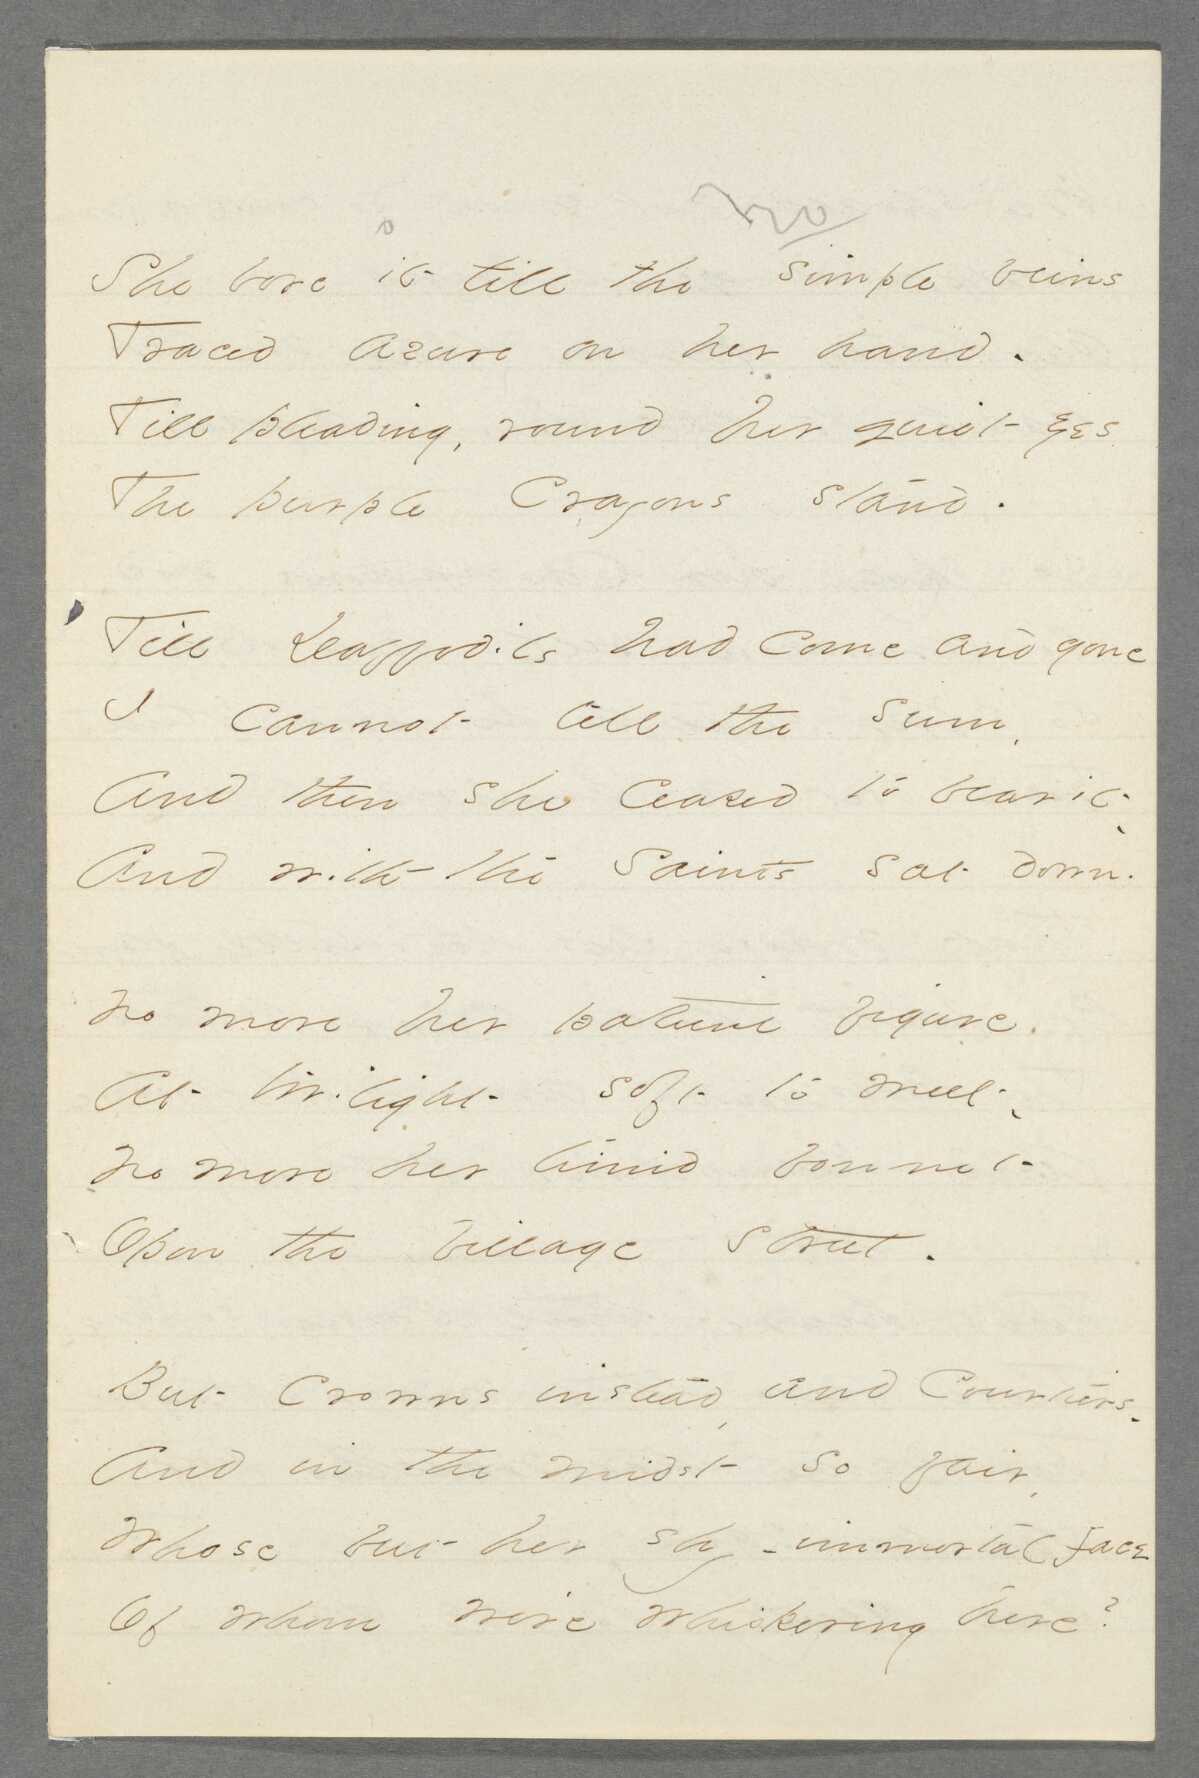 She bore it till the simple veins
Traced azure on her hand.
Till pleading, round her quiet eyes
The purple Crayons stand.
Till Daffodils had come and gone
I cannot tell the sum,
And then she ceased to bear it,
And with the Saints sat down.
No more her patient figure.
At twilight soft to meet,
No more her timid bonnet
Upon the village street.
But Crowns instead, and Courtiers,
And in the midst so fair,
Whose but her shy - immortal face
Of whom we're whispering here?